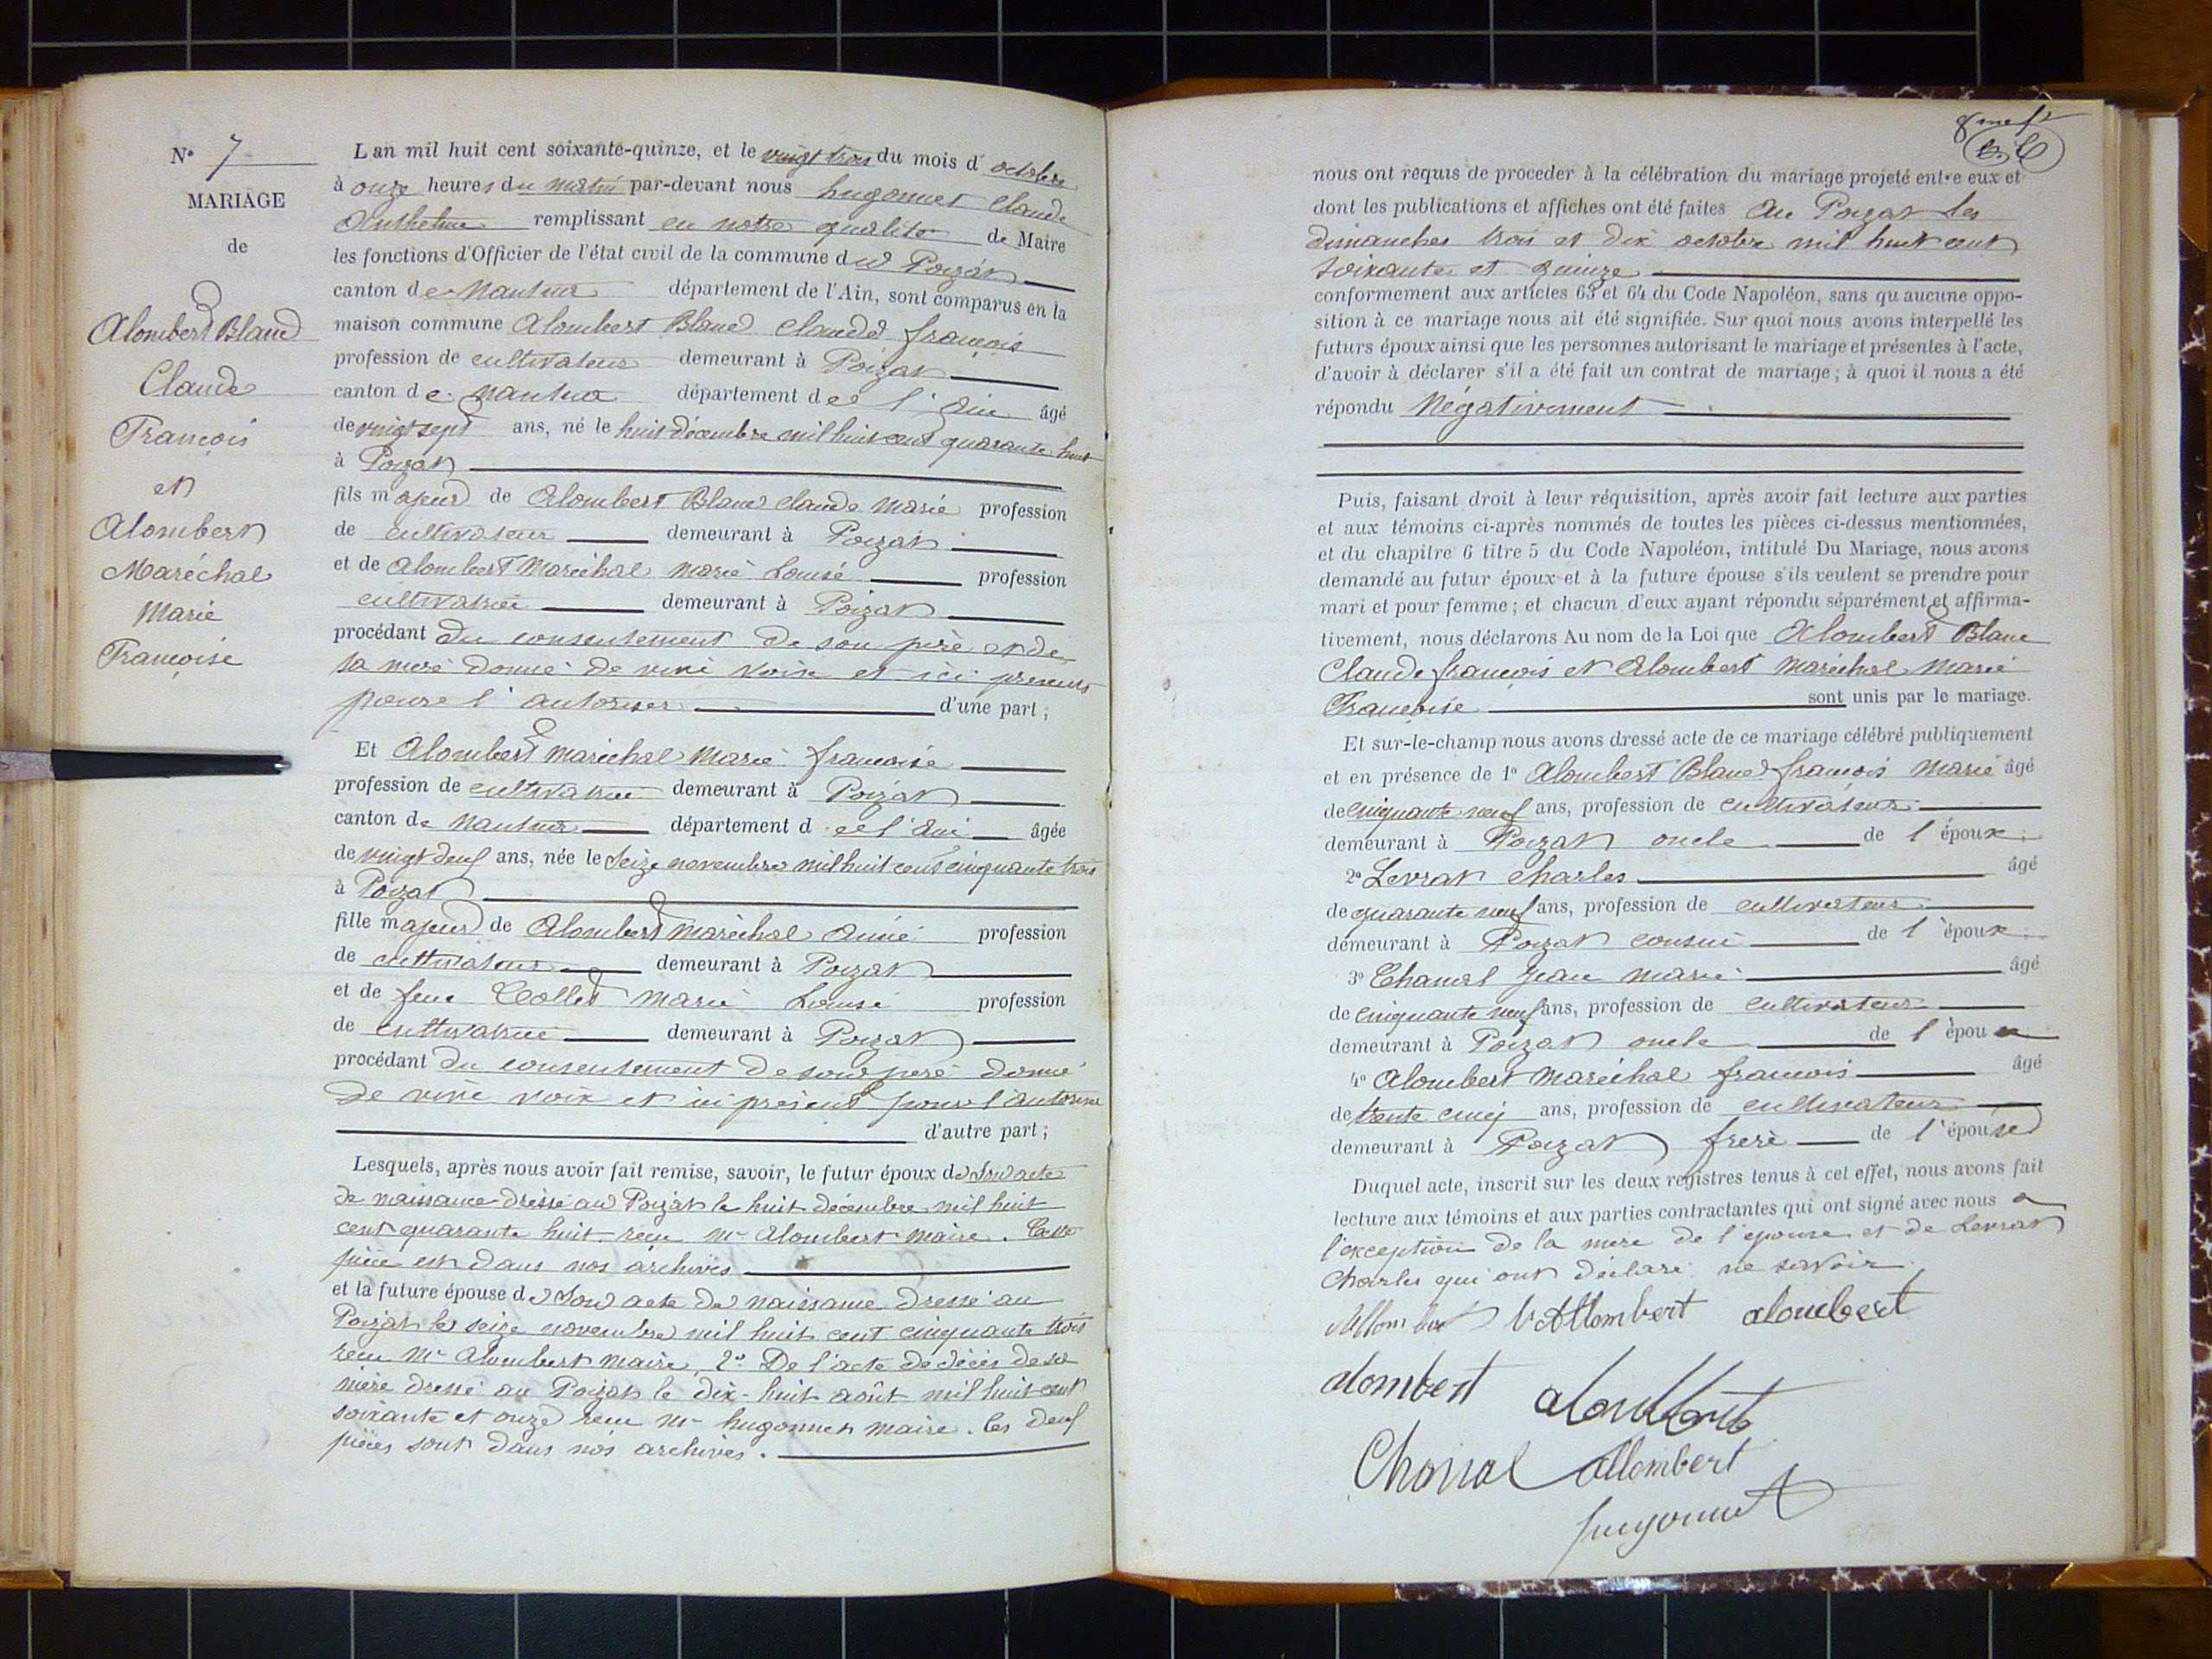 N° 7
MARIAGE
de
Alombert Blanc
Claude
François
et
Alombert
Maréchal
Marie
Françoise
L'an mil huit cent soixante-quinze, et le vingt trois du mois d'octobre
à onze heures du matin par-devant nous hugonnet Claude
Anthelme remplissant en notre qualité de Maire
les fonctions d'Officier de l'état civil de la commune du Poizat
canton de Nantua département de l'Ain, sont comparus en la
maison commune Alombert Blanc Claude françois
profession de cultivateur demeurant à Poizat
canton de Nantua département de l'Ain âgé
de vingt sept ans, né le huit décembre mil huit cent quarante huit
à Poizat
fils majeur de Alombert Blanc Claude Marie profession
de cultivateur demeurant à Poizat
et de Alombert Maréchal Marie Louise profession
cultivatrice demeurant à Poizat
procédant du consentement de son père et de
sa mère donné de vive voix et ici présents
pour l'autoriser d'une part ;
Et Alombert Maréchal Marie françoise
profession de cultivatrice demeurant à Poizat
canton de Nantua département de l'Ain âgée
de vingt deux ans, née le Seize novembre mil huit cent cinquante trois
à Poizat
fille majeur de Alombert Maréchal Aimé profession
de cultivateur demeurant à Poizat
et de feue Collet Marie Louise profession
de cultivatrice demeurant à Poizat
procédant du consentement de son père donné
de vive voix et ici présent pour l'autoriser
d'autre part ;
Lesquels, après nous avoir fait remise, savoir, le futur époux de Son acte
de naissance dressé au Poizat le huit décembre mil huit
cent quarante huit reçu Mr Alombert maire. Cette
pièce est dans nos archives
et la future épouse de Son acte de naissance dressé au
Poizat le seize novembre mil huit cent cinquante trois
reçu Mr Alombert maire, 2° De l'acte de décès de sa
mère dressé au Poizat le dix-huit août mil huit cent
soixante et onze reçu Mr hugonnet maire. les deux
pièces sont dans nos archives.
nous ont requis de proceder à la célébration du mariage projeté entre eux et
dont les publications et affiches ont été faites Au Poizat les
dimanches trois et dix octobre mil huit cent
soixante et quinze
conformement aux articles 63 et 64 du Code Napoléon, sans qu'aucune oppo-
sition à ce mariage nous ait été signifiée. Sur quoi nous avons interpellé les
futurs époux ainsi que les personnes autorisant le mariage et présentes à l'acte,
d'avoir à déclarer s'il a été fait un contrat de mariage ; à quoi il nous a été
répondu Négativement
Puis, faisant droit à leur réquisition, après avoir fait lecture aux parties
et aux témoins ci-après nommés de toutes les pièces ci-dessus mentionnées,
et du chapitre 6 titre 5 du Code Napoléon, intitulé Du Mariage, nous avons
demandé au futur époux et à la future épouse s'ils veulent se prendre pour
mari et pour femme ; et chacun d'eux ayant répondu séparément et affirma-
tivement, nous déclarons Au nom de la Loi que Alombert Blanc
Claude françois et Alombert Maréchal Marie
Françoise sont unis par le mariage.
Et sur-le-champ nous avons dressé acte de ce mariage célébré publiquement
et en présence de 1° Alombert Blanc françois Marie âgé
de cinquante neuf ans, profession de cultivateur
demeurant à Poizat oncle de l'époux
2° Levrat Charles âgé
de quarante neuf ans, profession de cultivateur
demeurant à Poizat cousin de l'époux
3° Chanal Jean Marie âgé
de cinquante neuf ans, profession de cultivateur
demeurant à Poizat oncle de l'époux
4° Alombert Maréchal françois âgé
de trente cinq ans, profession de cultivateur
demeurant à Poizat frère de l'épouse
Duquel acte, inscrit sur les deux registres tenus à cet effet, nous avons fait
lecture aux témoins et aux parties contractantes qui ont signé avec nous a
l'exception de la mère de l'épouse et de Levrat
Charles qui ont déclaré ne savoir
Allombert Allombert aloubert
alombert aloubert
Chanal allombert
hugonnet